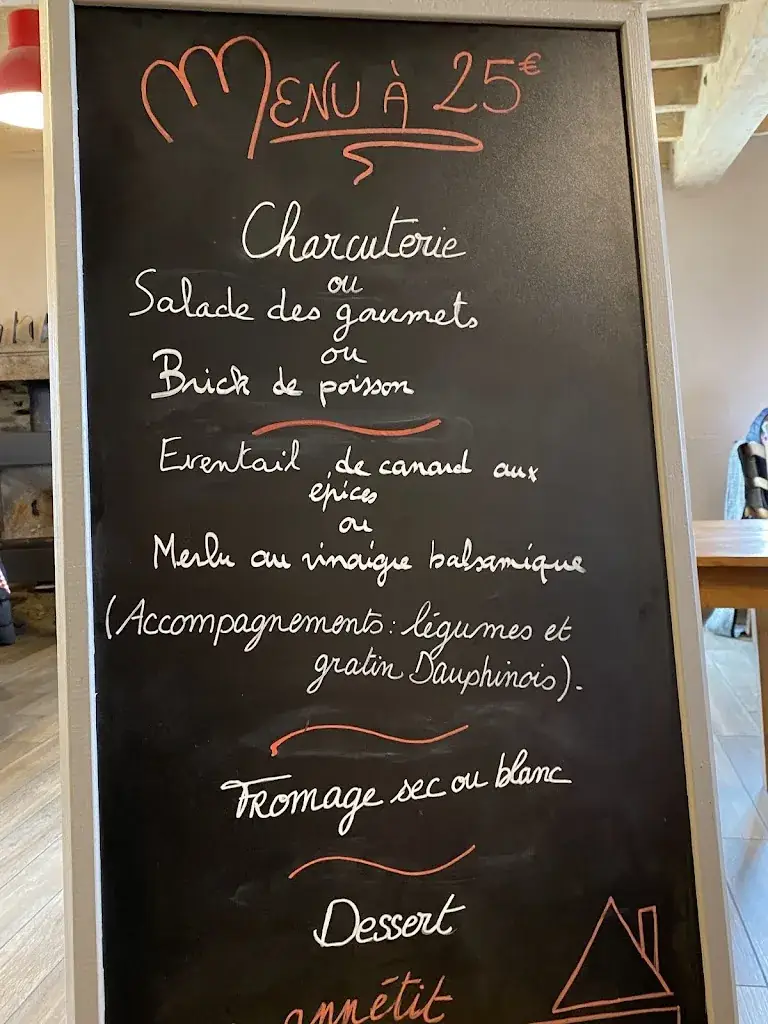 MENU À 25€
Charcuterie
ou
Salade des gourmets
ou
Brick de poisson
Eventail de canard aux
épices
ou
Merlu au vinaigre balsamique
(Accompagnements: légumes et
gratin Dauphinois).
Fromage sec ou blanc
Dessert
appétit